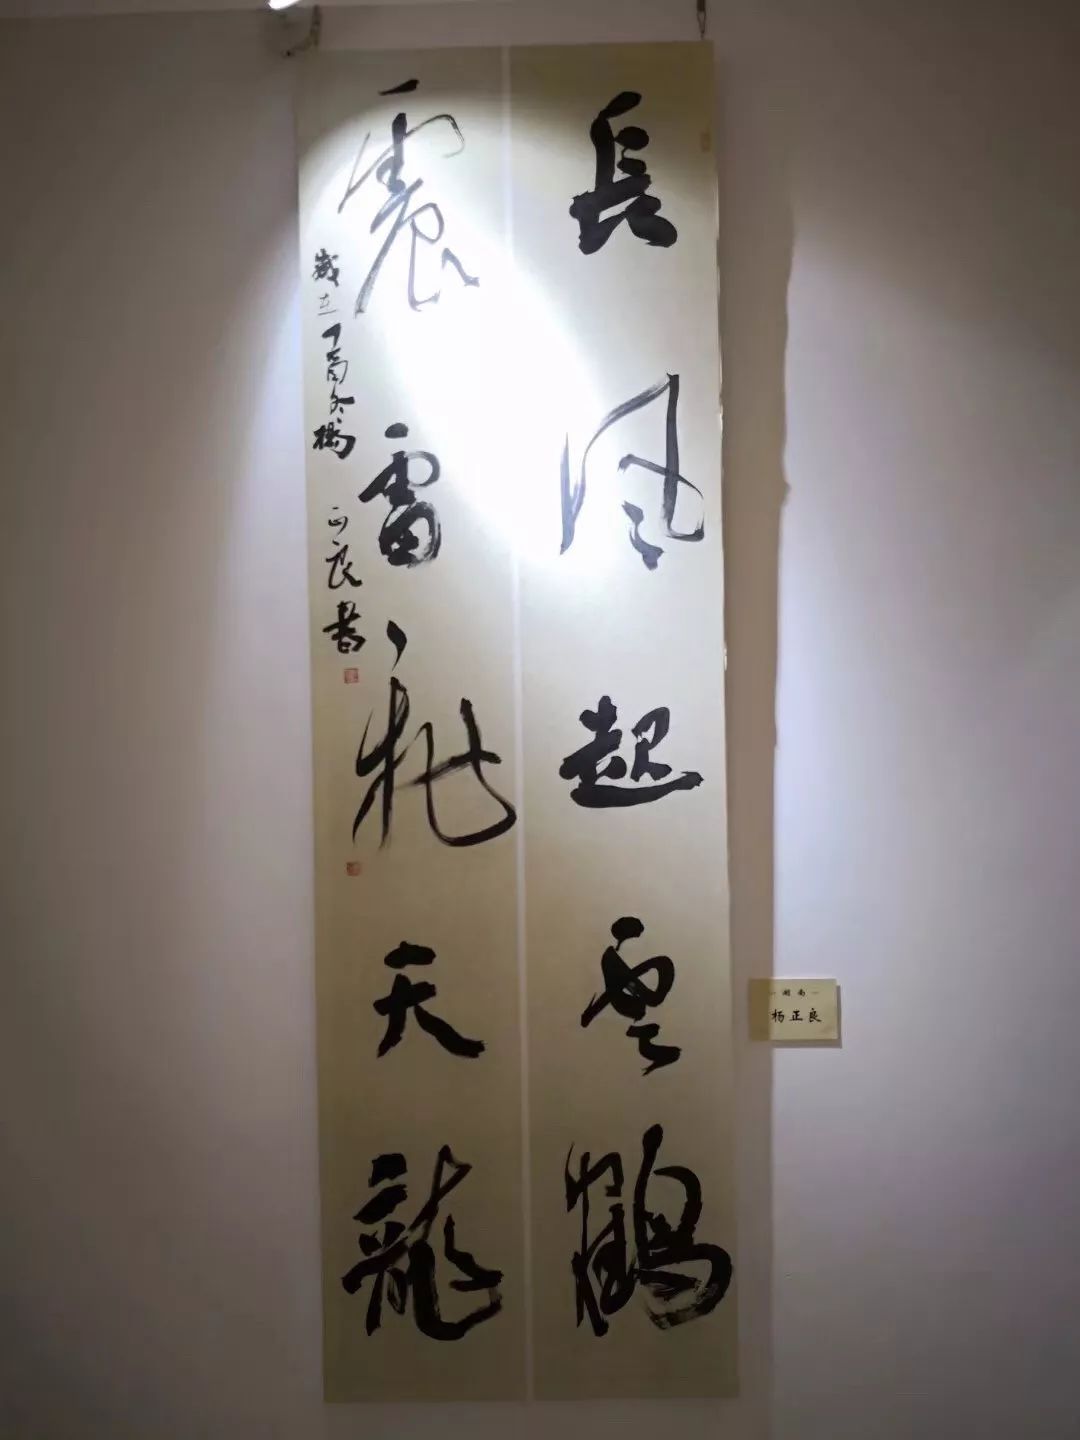 長風起雲鶴
震雷天龍
歲在丁酉冬楊正良書
湖南
杨正良